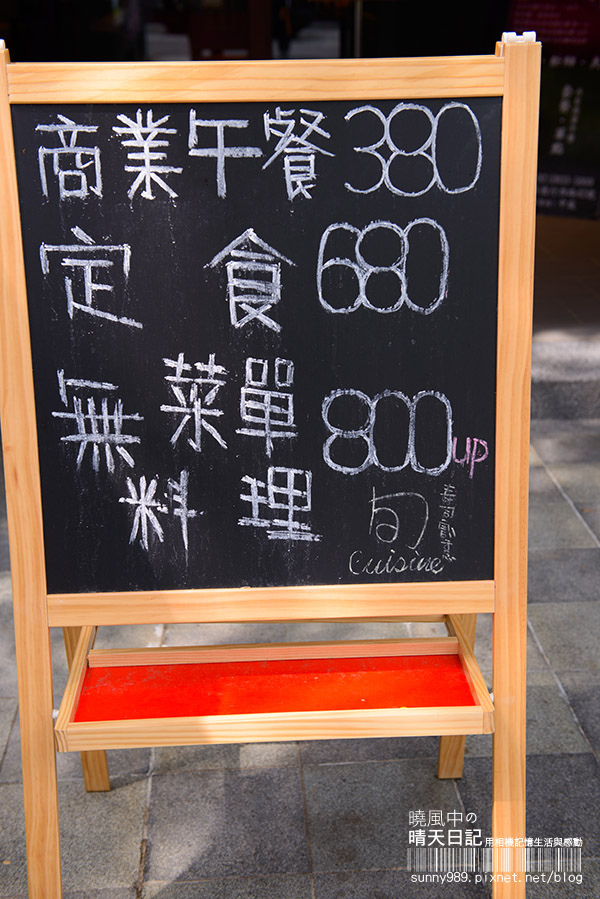 商業午餐 380
定食 680
無菜單料理 800 up
旬
Cuisine
曉風中の
晴天日記 用相機記憶生活與感動
sunny989.pixnet.net/blog